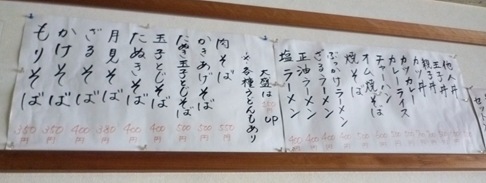 もりそば 350円
かけそば 350円
ざるそば 400円
月見そば 380円
たぬきそば 400円
玉子とじそば 400円
たぬき玉子とじそば 500円
かきあげそば 500円
肉そば 550円
※各種うどんもあり
大盛は 150円 UP
塩ラーメン 400円
正油ラーメン 400円
ざるラーメン
ぶっかけラーメン
焼そば
オム焼そば
チャーハン
カレーライス
カツカレー
カツ丼
親子丼
玉子丼
他人丼